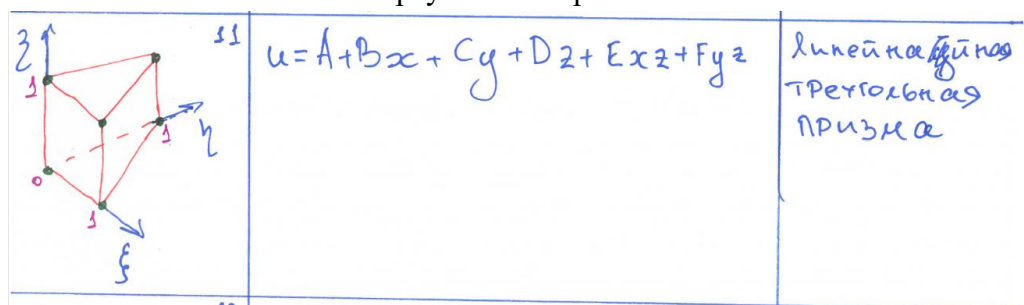 ζ
11
1
0
1
η
1
ξ
u = A + Bx + Cy + Dz + Exz + Fyz
линейная
треугольная
призма